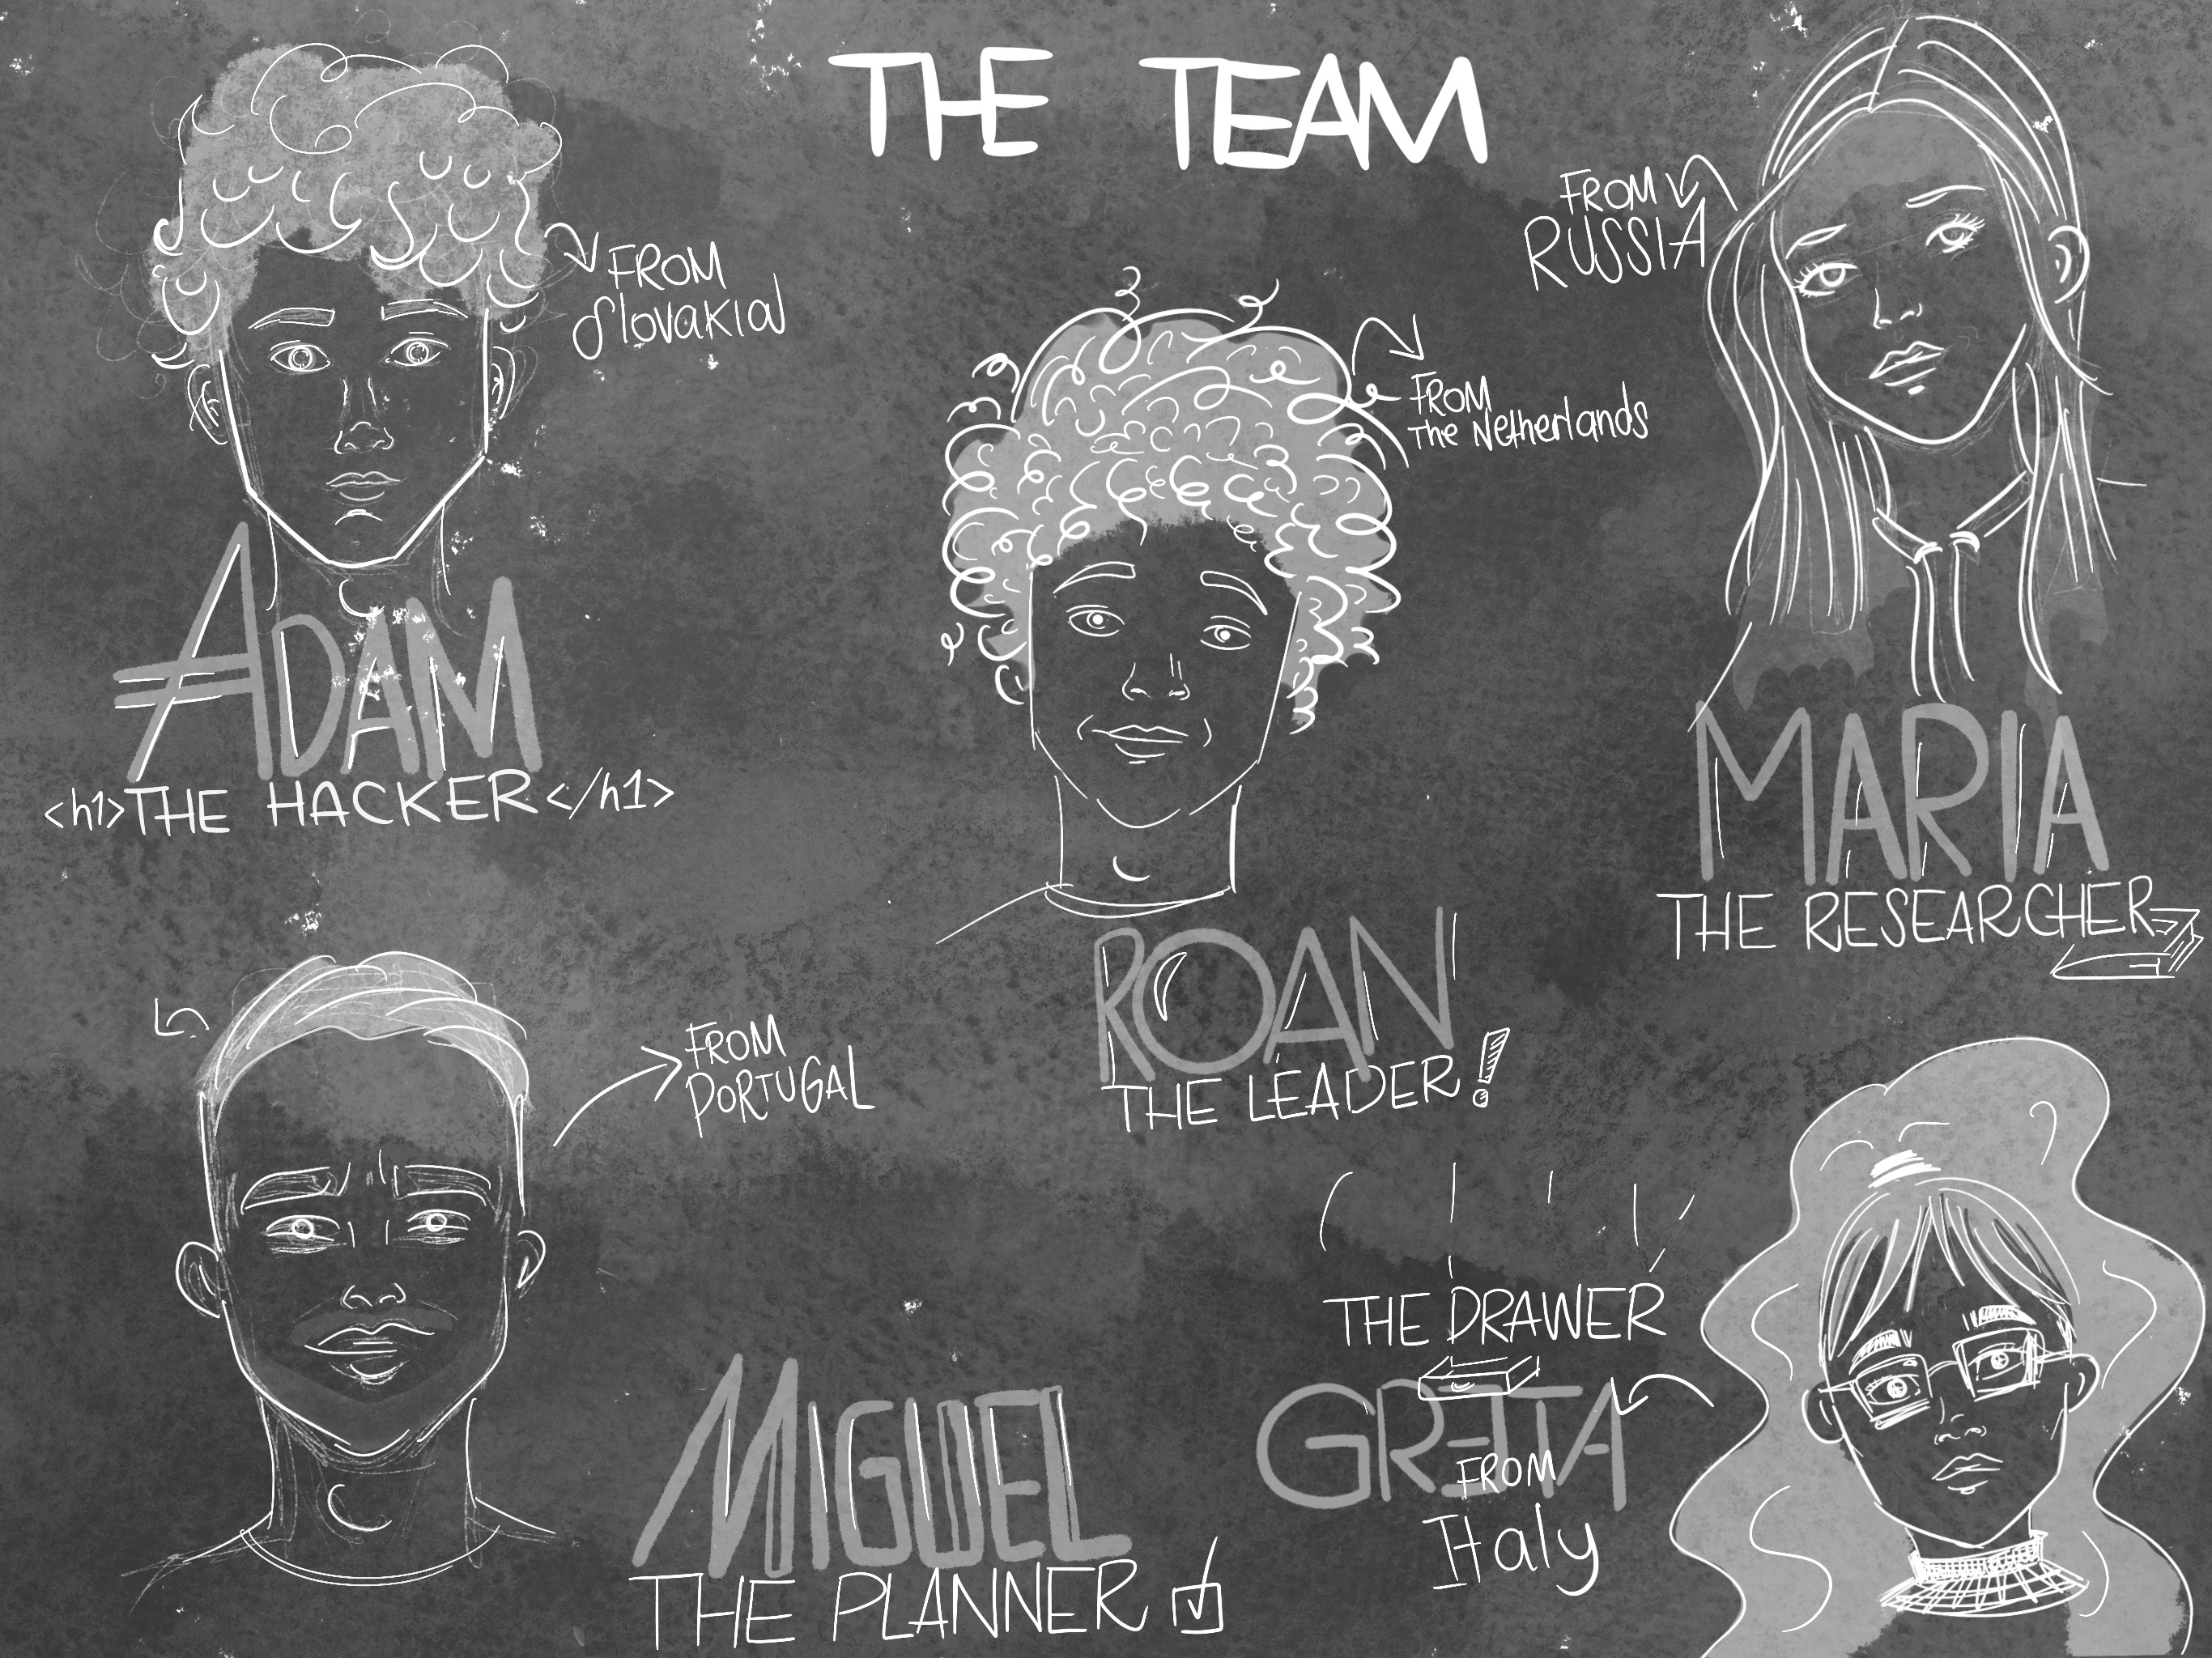 THE TEAM
FROM
Slovakia
ADAM
<h1>THE HACKER</h1>
FROM
The Netherlands
ROAN
THE LEADER!
FROM
RUSSIA
MARIA
THE RESEARCHER
FROM
PORTUGAL
MIGUEL
THE PLANNER
THE DRAWER
GRETA
FROM
Italy